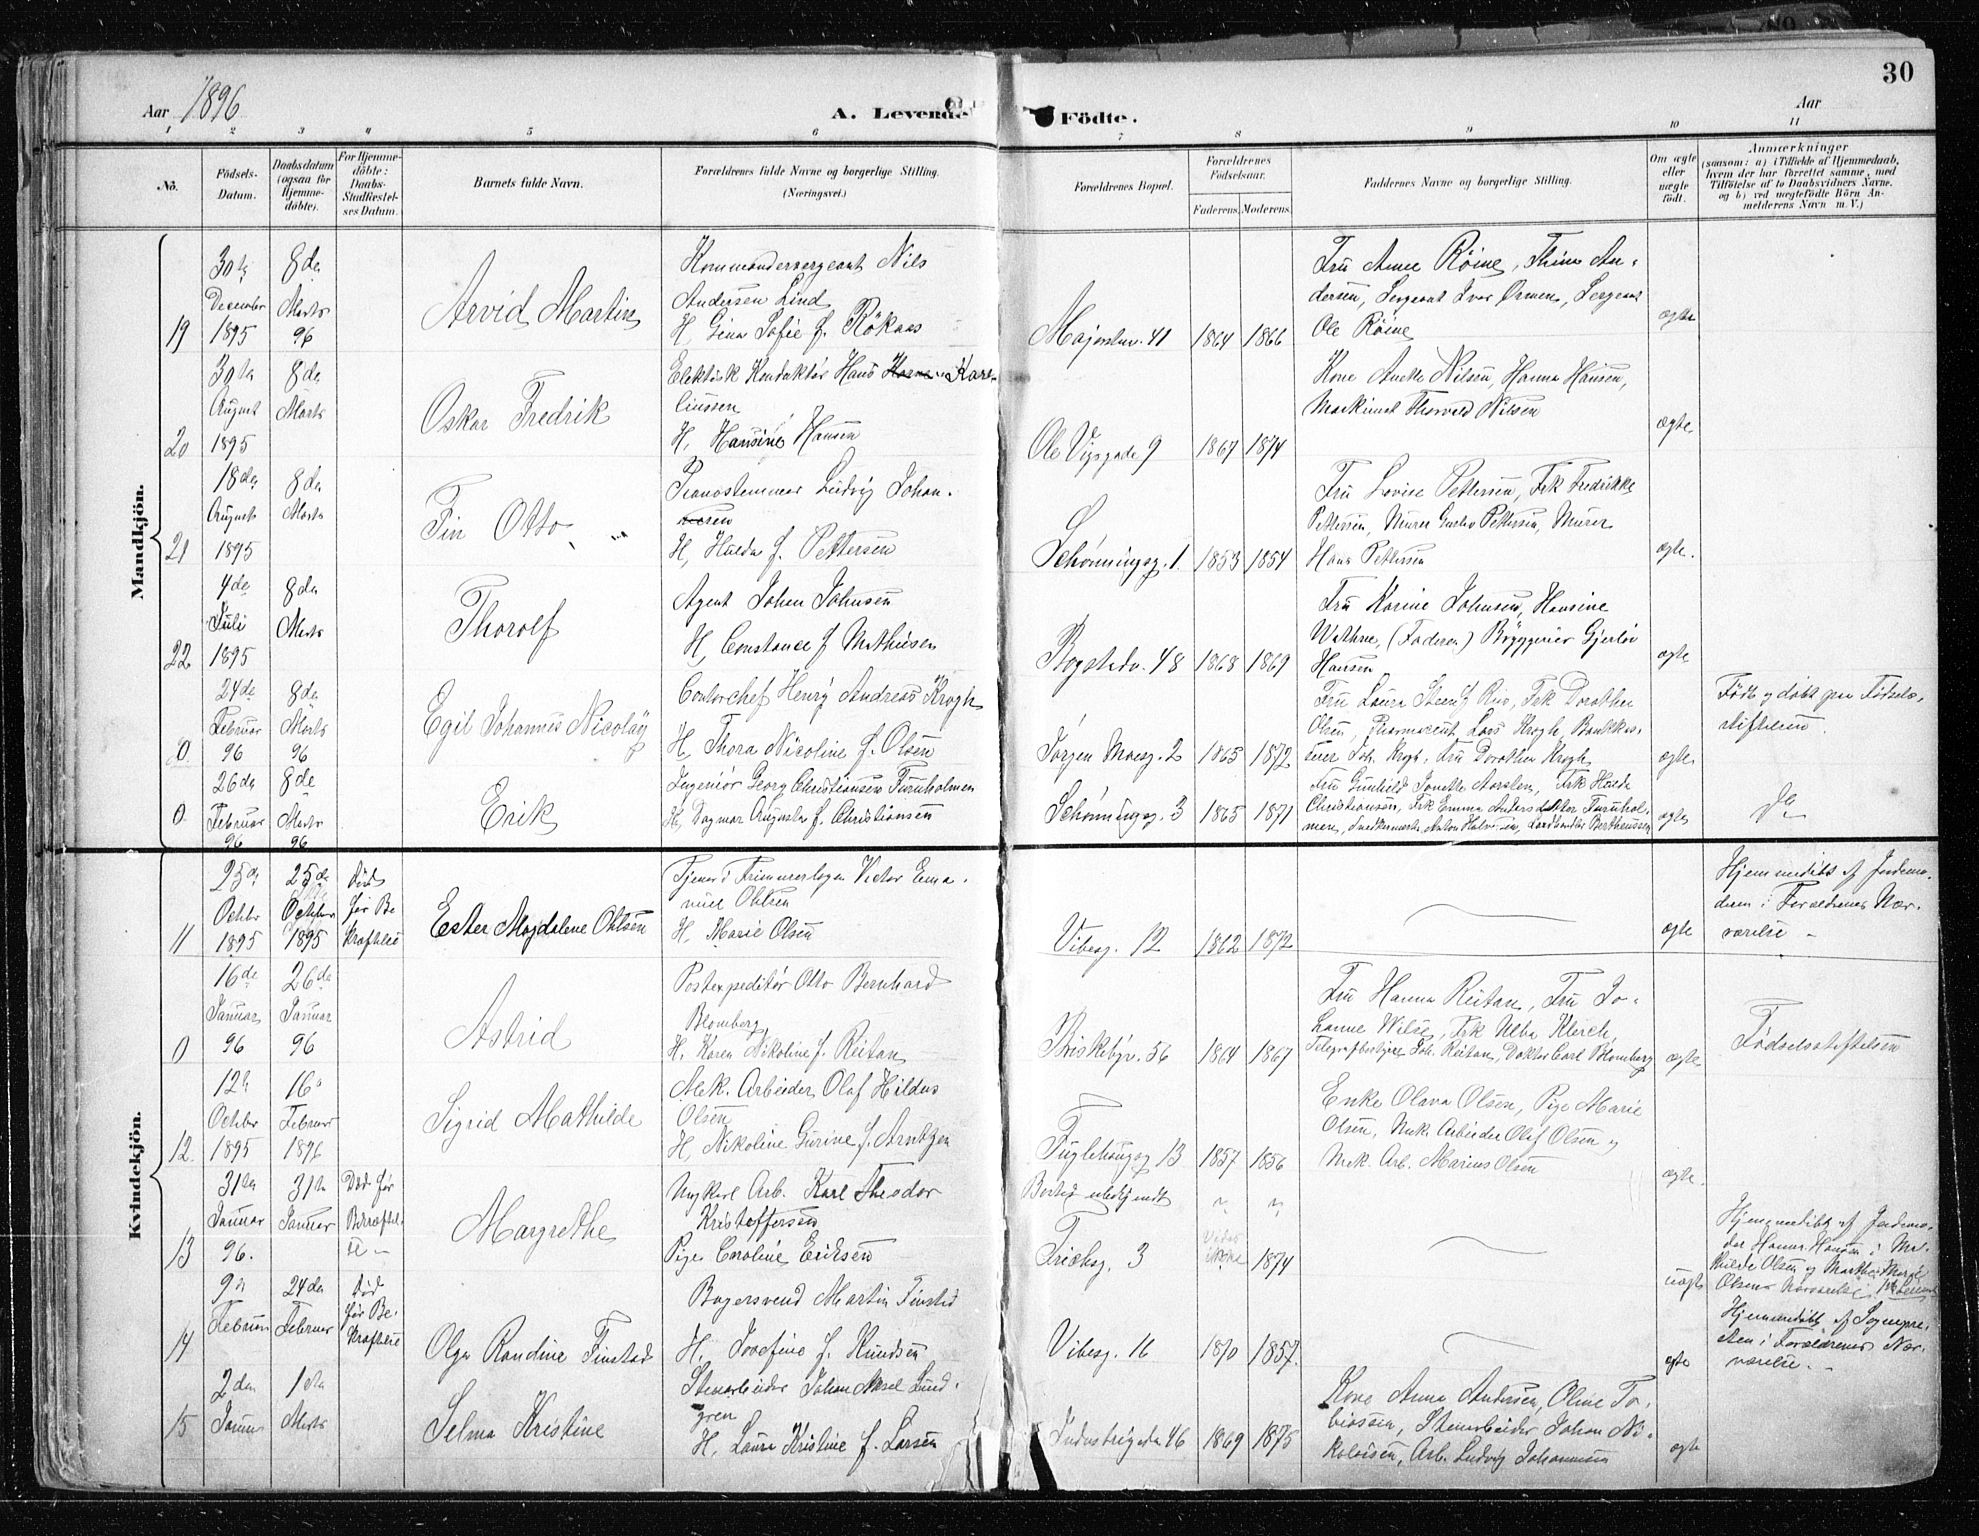 30
Aar 1896
A. Levende Födte.
Aar
1 2 3 4 5 6 7 8 9 10 11
No.
Födsels-Datum.
Daabsdatum (ogsaa for Hjemme-döbte).
For Hjemme-döbte: Daabs-Stadfæstel-ses Datum.
Barnets fulde Navn.
Forældrenes fulde Navne og borgerlige Stilling. (Næringsvei.)
Forældrenes Bopæl.
Forældrenes Födselsaar.
Faderens. Moderens.
Faddernes Navne og borgerlige Stilling.
Om ægte eller uægte födt.
Anmærkninger
(saasom: a) i Tilfælde af Hjemmedaab, hvem der har forrettet samme, med Tilföielse af to Daabsvidners Navne, og b) ved uægtefödte Börn An-melderens Navn m. V.)
Mandkjön.
19 30te December 1895
8de Marts 96
Arvid Martin
Kommandersergeant Nils
Andersen Lind
H. Gina Sofie f. Rökaas
Majorstuv. 41 1864 1866
Fru Anne Röine, Thina An-
dersen, Sergeant Ivar Ørmen, Sergeant
Ole Röine
ægte
20 30te August 1895
8de Marts
Oskar Fredrik
Elektrisk Konduktör Hans Karel-
iussen
H. Hansine Hansen
Ole Vigsgade 9 1867 1874
Kone Anette Nilsen, Hanna Hansen,
Maskinist Thorvald Nilsen
ægte
21 18de August 1895
8de Marts
Fin Otto
Pianostemmer Ludvig Johan-
nesen
H. Hulda f. Pettersen
Schönningsg. 1 1853 1854
Fru Lovise Pettersen, Frk Fredrikke
Pettersen, Murer Gustav Pettersen, Murer
Hans Pettersen
ægte.
22 4de Juli 1895
8de Marts
Thorolf
Agent Johan Johnsen
H. Constance f Mathiesen
Bogstadv. 48 1868 1869
Fru Karine Johnsen, Hansine
Wathne, (Faderen) Bryggerier Gjerlöv
Hansen
ægte
0 24de Februar 96
8de Marts 96
Egil Johannes Nicolay
Contorchef Henry Andreas Krogh
H. Thora Nicoline f. Olsen
Jörgen Moesg. 2 1865 1872
Fru Laura Steen f Riis, Frk Dorothea
Olsen, Pharmaceut Lars Krogh, Bankkas-
serer Joh. Krogh, Fru Dorothea Krogh
ægte
Födt og döbt paa Födsels-
stiftelsen.
0 26de Februar 96
8de Marts 96
Erik
Ingeniör Georg Christiansen Furuholmen
H. Dagmar Augusta f. Christiansen
Schönningsg. 3 1865 1871
Fru Gunhild Jonette Aarslen, Frk Hulda
Christiansen, Frk Emma
ægte
Do
Kvindekjön.
11 25de Octbr 1895
25de October 1895
död för Be kræftelse
Ester Magdalene Ohlsen
Tjener i Frimurerlogen Victor Ema-
nuel Ohlsen
H. Marie Olsen
Vibesg. 12 1862 1872
ægte
Hjemmedöbt af Jordemo-
deren i Forældrenes Nær-
værelse
0 16de Januar 96
26de Januar 96
Astrid
Postexpeditör Otto Bernhard
Blomberg
H. Karen Nikoline f. Reitan
Briskebyv. 56 1864 1867
Fru Hanna Reitan, Fru Jo-
hanne Wilse, Frk Ulba Klerck,
Telegrafbestyrer Joh. Reitan, Doktor Carl Blomberg
ægte
Födselsstiftelsen
12. 12te Octbr 1895
16de Februar 1896
Sigrid Mathilde
Mek. Arbeider Olaf Hildus
Olsen
H. Nikoline Gurine f. Arntzen
Fuglehaugsg 13 1857 1856
Enke Olava Olsen, Pige Marie
Olsen, Mek. Arbeider Olof Olsen og
Mek. Arb. Marius Olsen
ægte.
13 31te Januar 96.
31te Januar
Död för Bekræftel- se
Margrethe
Mykerl Arb. Karl Theodor
Kristoffersen
Pige Caroline Eriksen
Bosted ubekjendt
Frichsg. 3 1874
uægte
Hjemmedöbt af Jordemo-
der Hanna Hansen i Mat-
hilde Olsen og Marthe Marie
Olsens Nærværelse
14 9de Februar
24de Februar
död för Be- kræftelse
Olga Randine Finstad
Bagersvend Martin Finstad
H. Josefine f. Knudsen
Vibesg. 16 1870 1857.
ægte
Hjemmedöbt af Sognepre-
sten i Forældrenes Nær-
værelse.
15 2den Januar
1ste Marts
Selma Kristine
Stenarbeider Johan Axel Lund-
gren
H. Laura Kristine f. Larsen
Industrigaden 46 1869 1875
Kone Anna Andersen, Oline To-
biassen, Stenarbeider Johan Ni-
kolaisen, Arb. Ludvig Johannesen
ægte